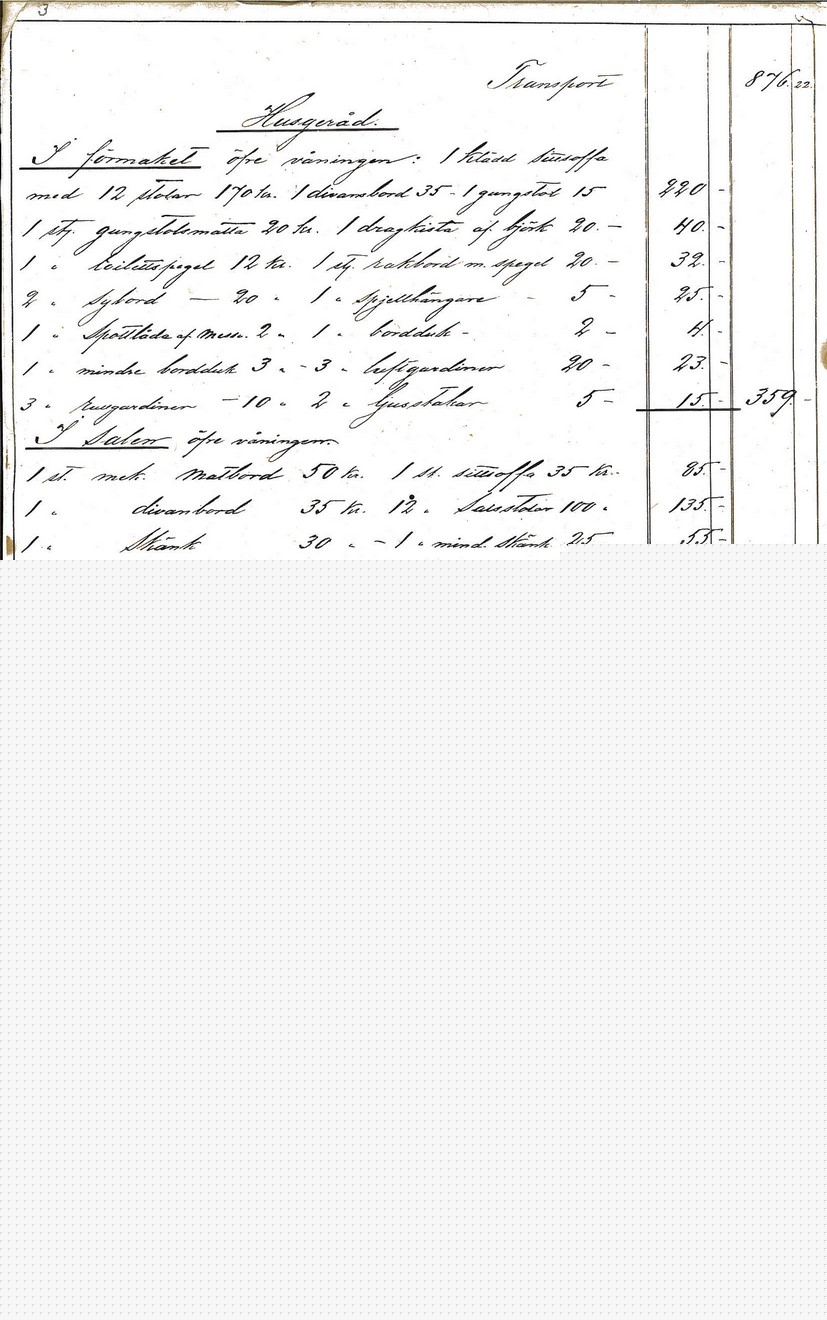 3
Transport 876.22
Husgeråd.
I förmaket öfre våningen: 1 klädd sittsoffa
med 12 stolar 170 kr. 1 divansbord 35 - 1 gungstol 15 220 -
1 st. gungstolsmatta 20 kr. 1 dragkista af björk 20. - 40. -
1 " toilettspegel 12 kr. 1 st. rakbord m. spegel 20. - 32. -
2 " sybord — 20 " 1 " spjellhängare - 5 - 25. -
1 " spottlåda af mess. 2 " 1 " bordduk - 2 - 4. -
1 " mindre bordduk 3 " - 3 " luftgardiner 20 - 23. -
3 " rullgardiner - 10 " 2 " ljusstakar 5 - 15. - 359. -
I Salen öfre våningen.
1 st. mek. matbord 50 kr. 1 st. sittsoffa 35 kr. 85. -
1 " divanbord 35 kr. 12 " salsstolar 100 " 135. -
1 " Skänk 30 " - 1 " mind. skänk 25 55 -